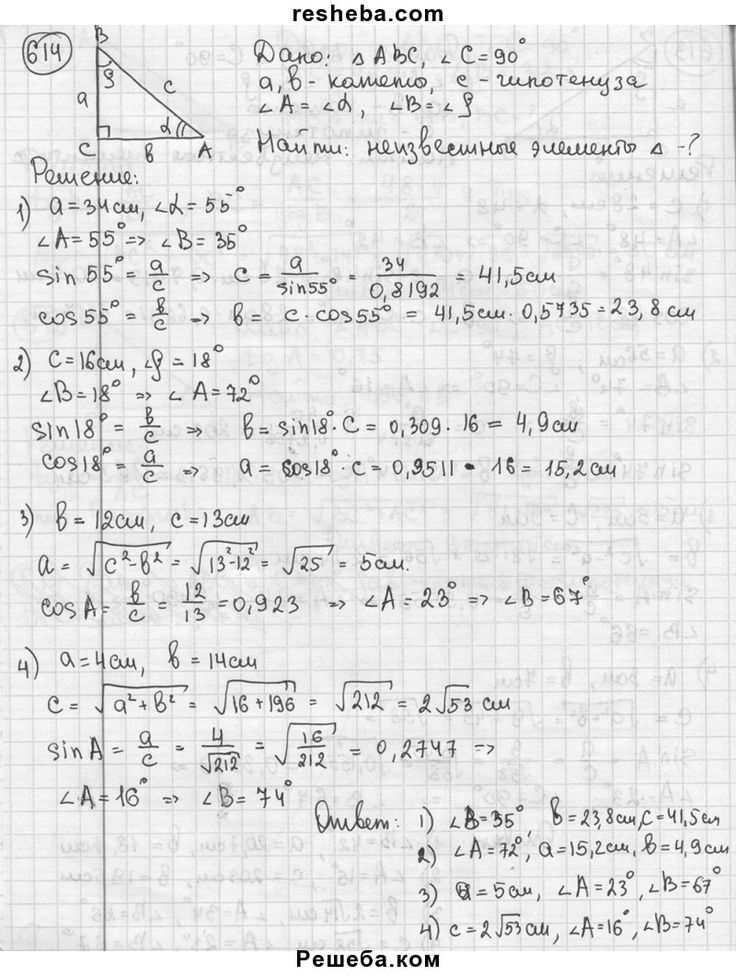 resheba.com
614
B
β
a
c
α
C
в
A
Дано: △ABC, ∠C=90°
a, в - катеты, c - гипотенуза
∠A=∠α, ∠B=∠β
Найти: неизвестные элементы △-?
Решение:
1) a=34см, ∠α=55°
∠A=55° => ∠B=35°
sin55° = a/c => c = a/sin55° = 34/0,8192 = 41,5см
cos55° = в/c => в = c·cos55° = 41,5см·0,5735=23,8см
2) c=16см, ∠β=18°
∠B=18° => ∠A=72°
sin18° = в/c => в=sin18°·c = 0,309·16 = 4,9см
cos18° = a/c => a=cos18°·c=0,9511·16=15,2см
3) в=12см, c=13см
a = √(c²-в²) = √(13²-12²) = √25 = 5см.
cosA= в/c = 12/13 =0,923 => ∠A=23° => ∠B=67°
4) a=4см, в=14см
c = √(a²+в²) = √(16+196) = √212 = 2√53 см
sinA = a/c = 4/√212 = √(16/212) = 0,2747 =>
∠A=16° => ∠B=74°
Ответ: 1) ∠B=35° в=23,8см, c=41,5см
2) ∠A=72°, a=15,2см, в=4,9см
3) a=5см, ∠A=23°, ∠B=67°
4) c=2√53см, ∠A=16°, ∠B=74°
Решеба.ком